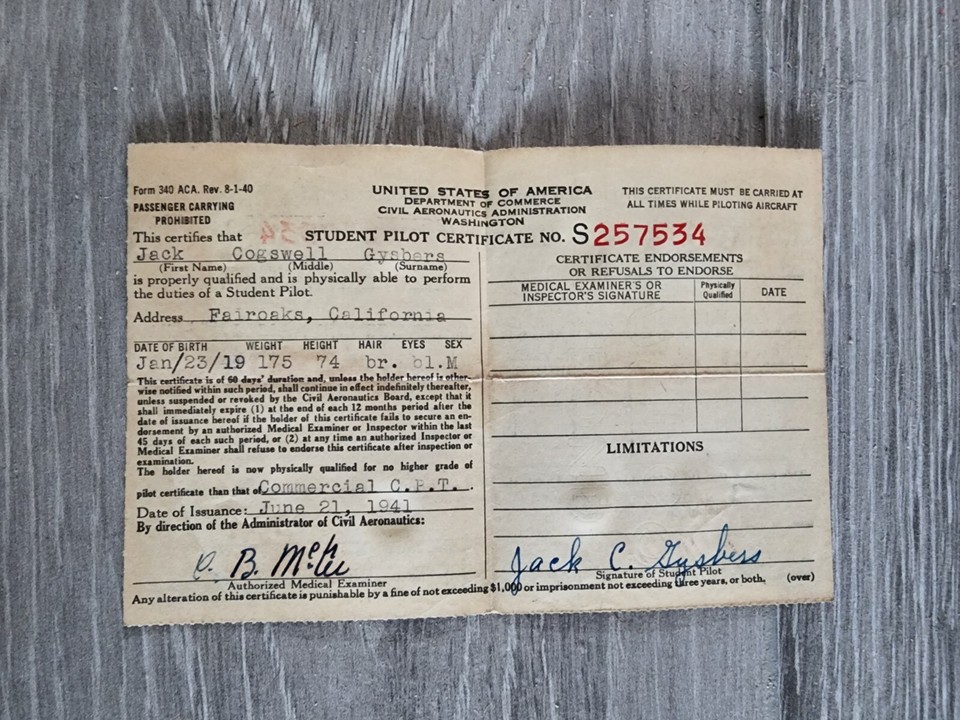 Form 340 ACA. Rev. 8-1-40
PASSENGER CARRYING
PROHIBITED
UNITED STATES OF AMERICA
DEPARTMENT OF COMMERCE
CIVIL AERONAUTICS ADMINISTRATION
WASHINGTON
THIS CERTIFICATE MUST BE CARRIED AT
ALL TIMES WHILE PILOTING AIRCRAFT
This certifies that
STUDENT PILOT CERTIFICATE NO. S257534
Jack Cogswell Gysbers
(First Name) (Middle) (Surname)
is properly qualified and is physically able to perform
the duties of a Student Pilot.
Address Fairoaks, California
DATE OF BIRTH WEIGHT HEIGHT HAIR EYES SEX
Jan/23/19 175 74 br. bl. M
This certificate is of 60 days' duration and, unless the holder hereof is other-
wise notified within such period, shall continue in effect indefinitely thereafter,
unless suspended or revoked by the Civil Aeronautics Board, except that it
shall immediately expire (1) at the end of each 12 months period after the
date of issuance hereof if the holder of this certificate fails to secure an en-
dorsement by an authorized Medical Examiner or Inspector within the last
45 days of each such period, or (2) at any time an authorized Inspector or
Medical Examiner shall refuse to endorse this certificate after inspection or
examination.
The holder hereof is now physically qualified for no higher grade of
pilot certificate than that of Commercial C.P.T.
Date of Issuance: June 21, 1941
By direction of the Administrator of Civil Aeronautics:
B. McK
Authorized Medical Examiner
CERTIFICATE ENDORSEMENTS
OR REFUSALS TO ENDORSE
MEDICAL EXAMINER'S OR
INSPECTOR'S SIGNATURE
Physically
Qualified
DATE
LIMITATIONS
Jack C. Gysbers
Signature of Student Pilot
(over)
Any alteration of this certificate is punishable by a fine of not exceeding $1,000 or imprisonment not exceeding three years, or both.